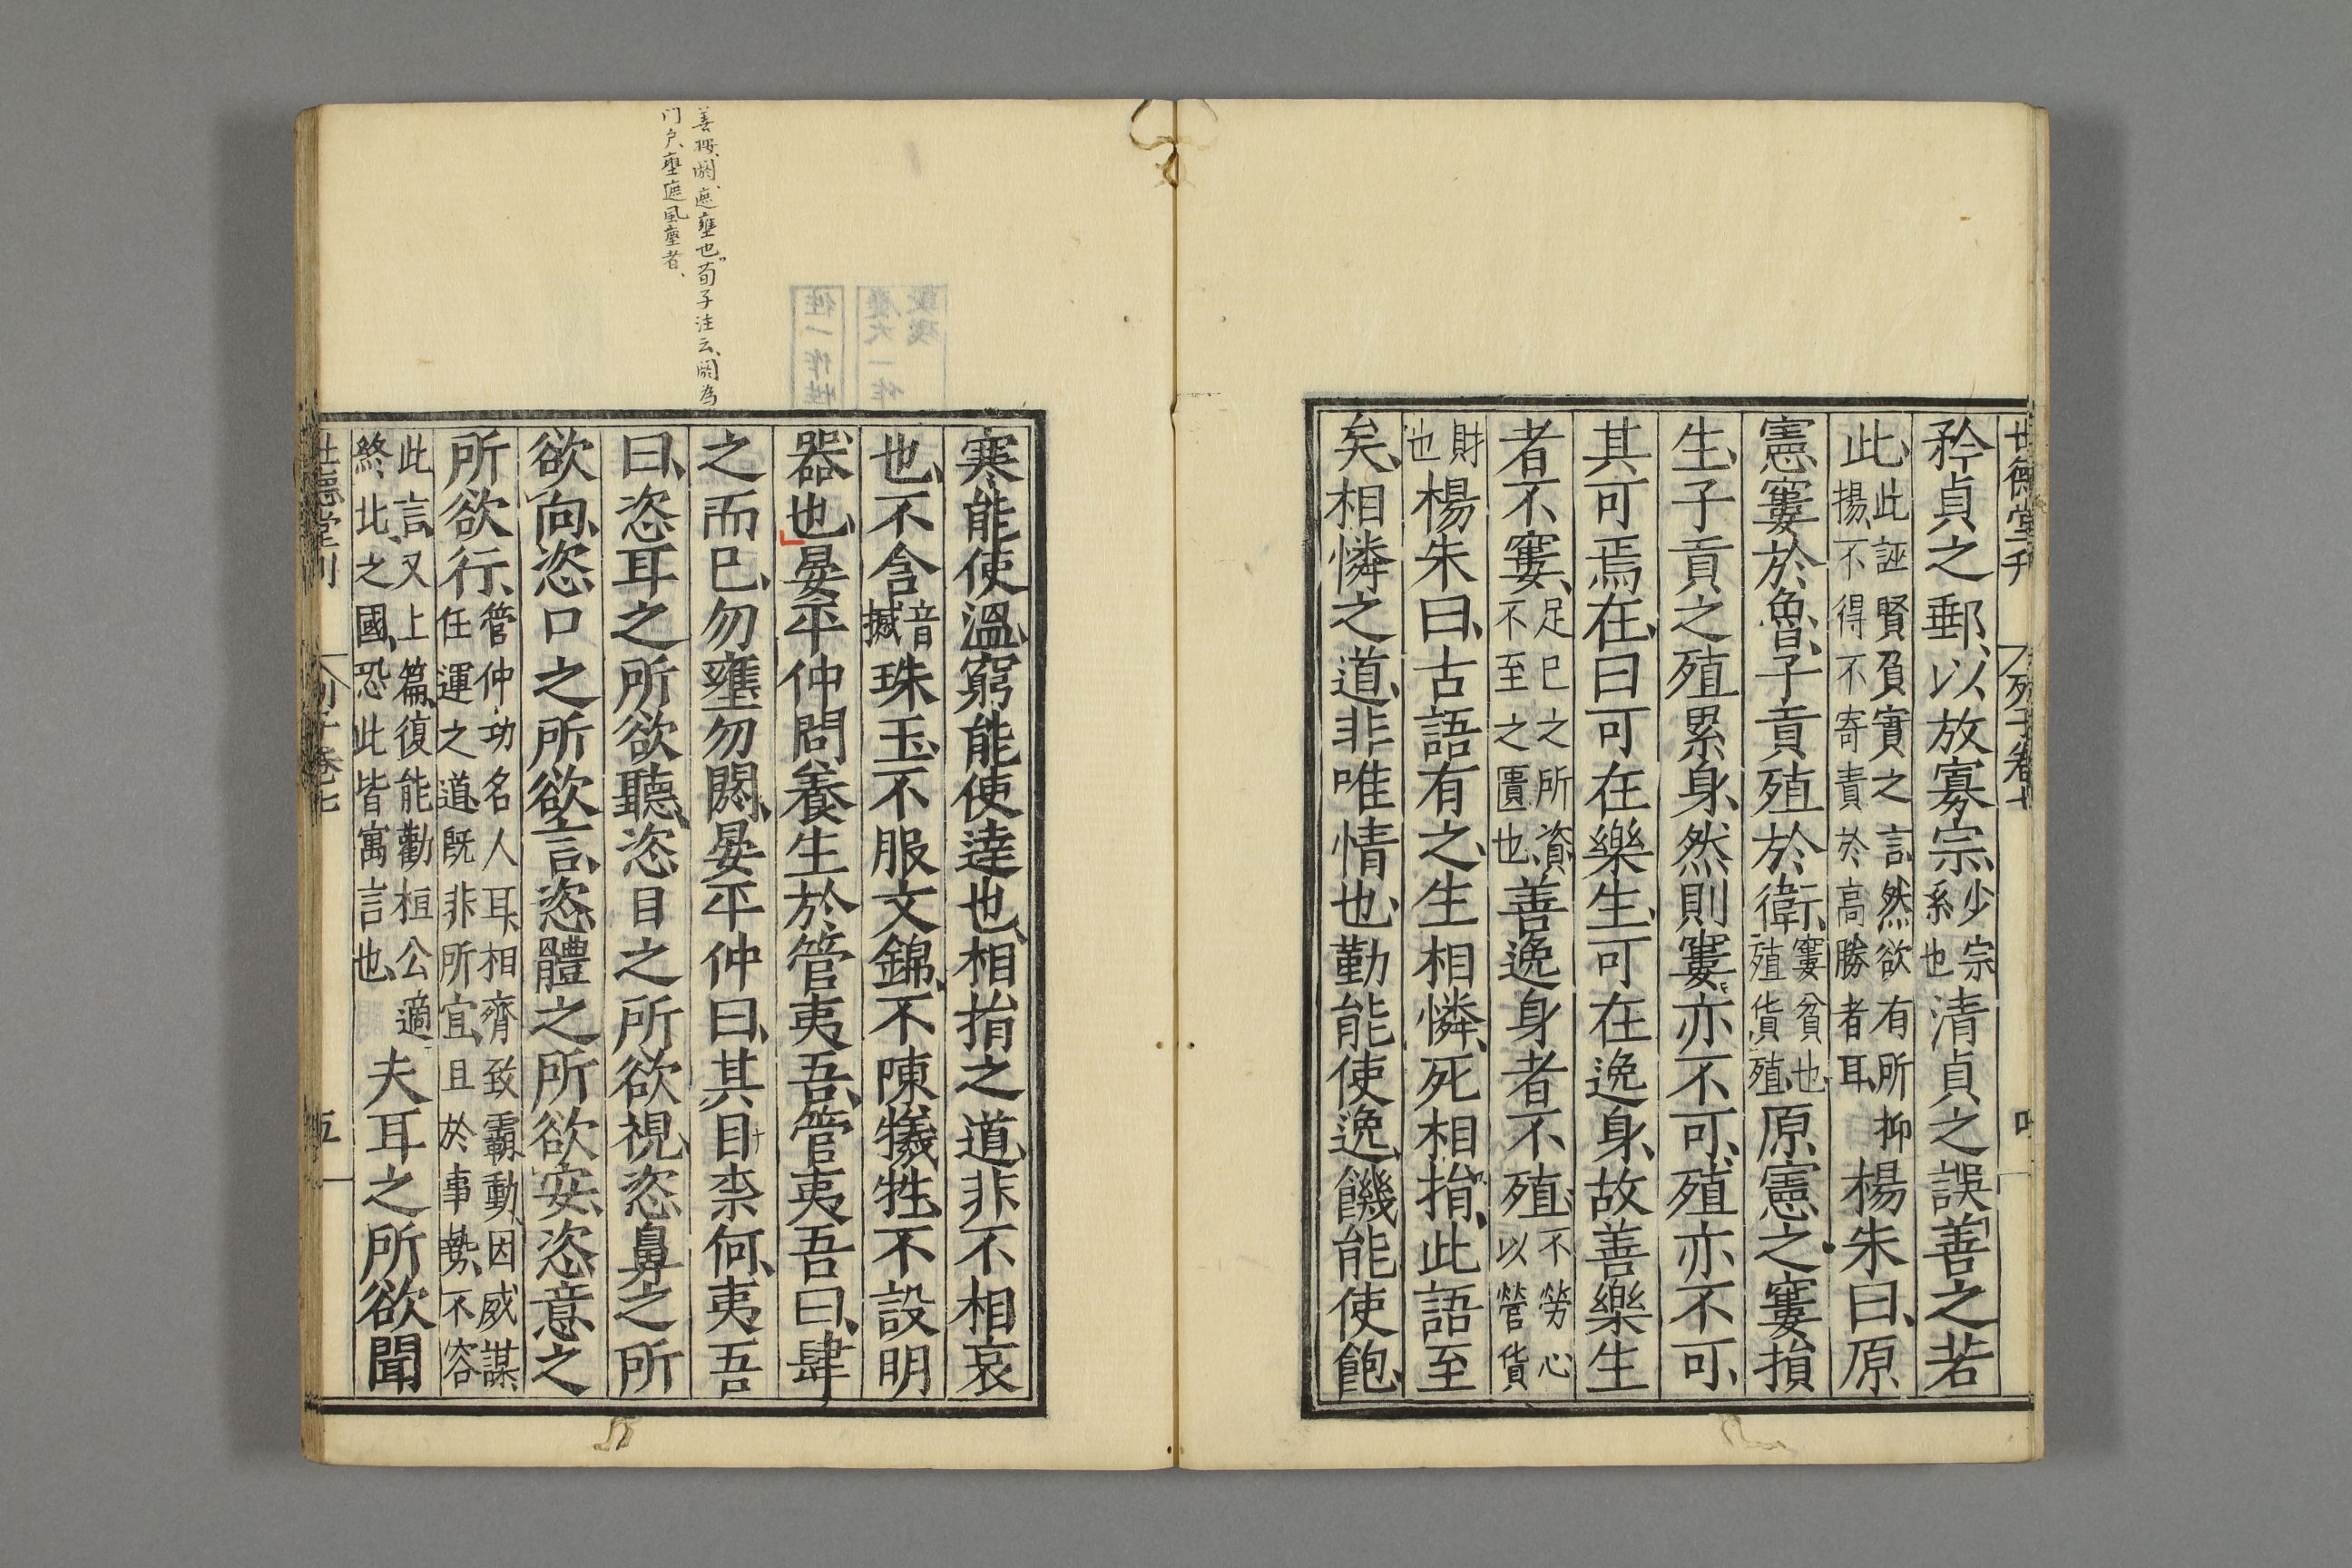 世德堂刊 列子卷七 四
矜貞之郵以放寡宗少宗系也清貞之誤善之若
此此誣賢負實之言然欲有所抑揚不得不寄責於高勝者耳楊朱曰原
憲窶於魯子貢殖於衛窶貧也殖貨殖原憲之窶損
生子貢之殖累身然則窶亦不可殖亦不可
其可焉在曰可在樂生可在逸身故善樂生
者不窶足己之所資不至之匱也善逸身者不殖不勞心以營貨
財也楊朱曰古語有之生相憐死相捐此語至
矣相憐之道非唯情也勤能使逸饑能使飽
寒能使溫窮能使達也相捐之道非不相哀
也不含音撼珠玉不服文錦不陳犧牲不設明
器也晏平仲問養生於管夷吾管夷吾曰肆
之而已勿壅勿閼晏平仲曰其目柰何夷吾
曰恣耳之所欲聽恣目之所欲視恣鼻之所
欲向恣口之所欲言恣體之所欲安恣意之
所欲行管仲功名人耳相齊致霸動因威謀任運之道既非所宜且於事勢不容
此言又上篇復能勸桓公適終北之國恐此皆寓言也夫耳之所欲聞
世德堂刊 列子卷七 五
善按閼遮壅也荀子注云閼為
门户壅遮風塵者